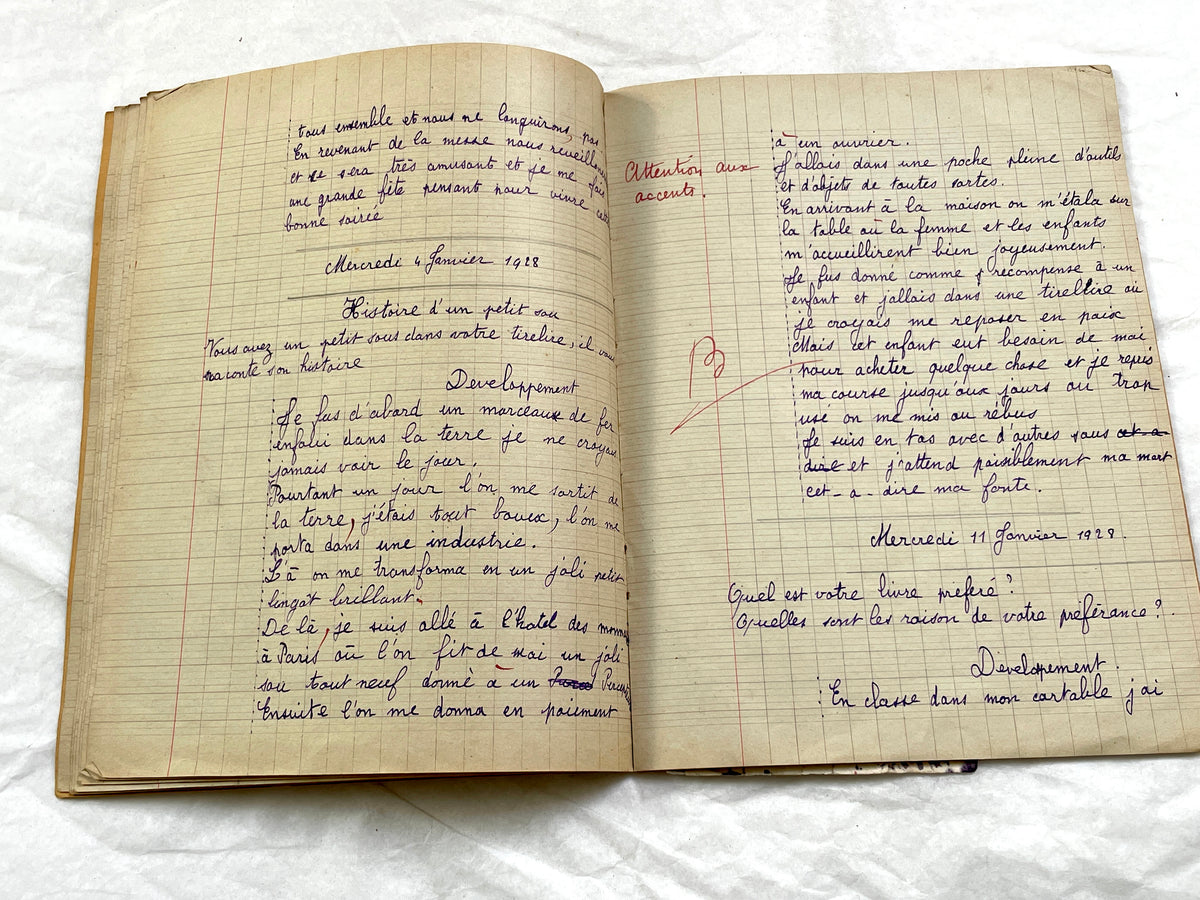 tous ensemble et nous ne languirons pas
En revenant de la messe nous reveillonerons
et se sera très amusant et je me fais
une grande fête pensant pour vivre cette
bonne soirée
Mercredi 4 Janvier 1928
Histoire d'un petit sou
Vous avez un petit sous dans votre tirelire, il vous
raconte son histoire
Developpement
Je fus d'abord un morceaux de fer
enfoui dans la terre je ne croyais
jamais voir le jour.
Pourtant un jour l'on me sortit de
la terre, j'étais tout boueux, l'on me
porta dans une industrie.
Là on me transforma en un joli petit
lingot brillant.
De là, je suis allé à l'hotel des monnaies
à Paris où l'on fit de moi un joli
sou tout neuf donné à un
Ensuite l'on me donna en paiement
Attention aux
accents.
B
à un ouvrier.
J'allais dans une poche pleine d'outils
et d'objets de toutes sortes.
En arrivant à la maison on m'étala sur
la table où la femme et les enfants
m'accueillirent bien joyeusement.
Je fus donné comme recompense à un
enfant et jallais dans une tirellire où
je croyais me reposer en paix
Mais cet enfant eut besoin de moi
pour acheter quelque chose et je repris
ma course jusqu'aux jours ou trop
usé on me mis au rébus
Je suis en tas avec d'autres sous et a
dire et j'attend paisiblement ma mort
cet-a-dire ma fonte.
Mercredi 11 Janvier 1928.
Quel est votre livre preferé?
Quelles sont les raison de votre préférance?
Développement.
En classe dans mon cartable j'ai